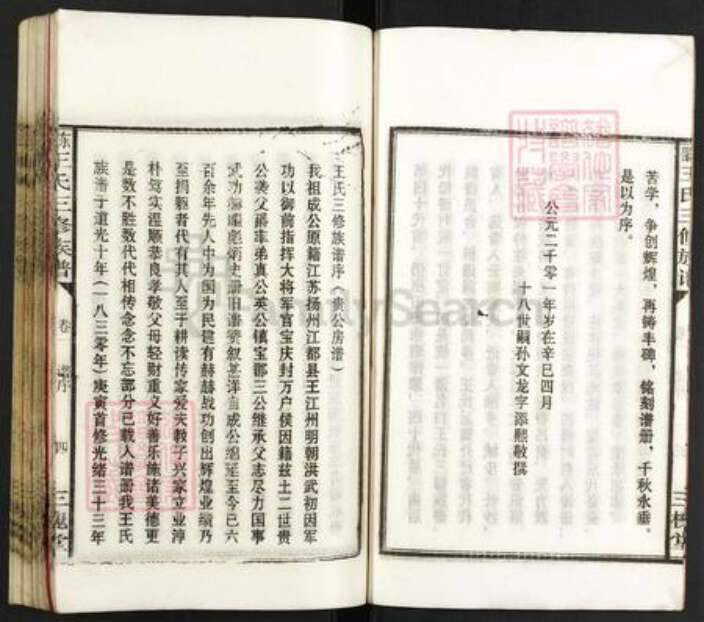 苦学，争创辉煌，再铸丰碑，铭刻谱册，千秋永垂。
是以为序。
公元二千零一年岁在辛巳四月
十八世嗣孙文龙字添熙敬撰
王氏三修族谱序（贵公房谱）
我祖成公原籍江苏扬州江都县王江州明朝洪武初因军
功以御前指挥大将军官宝庆封万户侯因籍兹土二世贵
公袭父爵辈弟真公英公镇宝郡三公继承父志尽力国事
武功 彪炳史册旧谱 叙甚详自成公 延至今已六
百余年先人中为国为民建有赫赫战功创出辉煌业绩乃
至捐躯者代有其人至于耕读传家爱夫教子兴家立业淳
朴笃实温顺恭良孝敬父母轻财重义好善乐施诸美德更
是数不胜数代代相传念念不忘部分已载入谱册我王氏
族谱于道光十年（一八三零年）庚寅首修光绪三十三年
王氏三修族谱
卷
谱序
四
三槐堂
FamilySearch